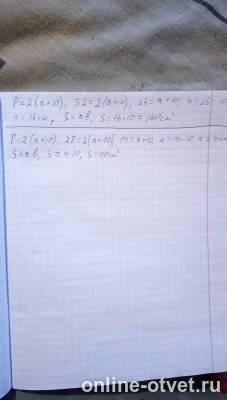 P=2(a+10), 52=2(a+10), 26=a+10, a=26-10
a=16см, S=ab, S=16·10=160см²
P=2(a+10), 28=2(a+10) 14=a+10, a=14-10, a=4см
S=ab, S=4·10, S=40см²
online-otvet.ru